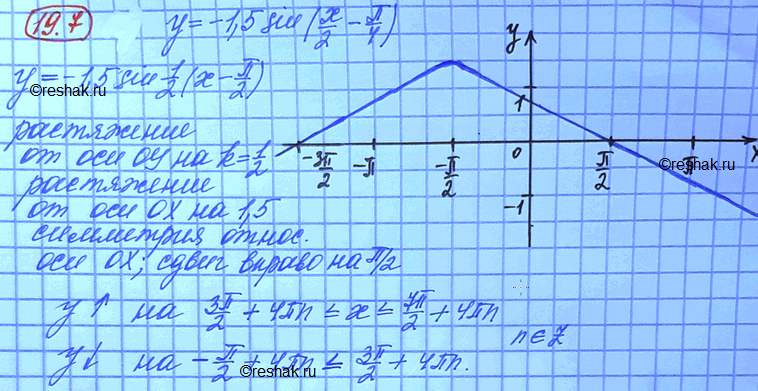 19.7
y = -1,5 sin(x/2 - π/4)
y = -1,5 sin 1/2 (x - π/2)
©reshak.ru
растяжение
от оси OY на k = 1/2
растяжение
от оси OX на 1,5
симметрия относ.
оси OX; сдвиг вправо на π/2
y
1
-3π/2 -π -π/2 0 π/2 π x
-1
©reshak.ru
y↑ на 3π/2 + 4πn ≤ x ≤ 7π/2 + 4πn
n ∈ Z
y↓ на -π/2 + 4πn ≤ 3π/2 + 4πn.
©reshak.ru